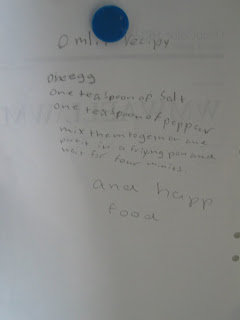 omlit recipy
one egg
one teaspoon of salt
one teaspoon of peppar
mix them together and
put it in a friping pan and
wait for four minies.
and happ
food